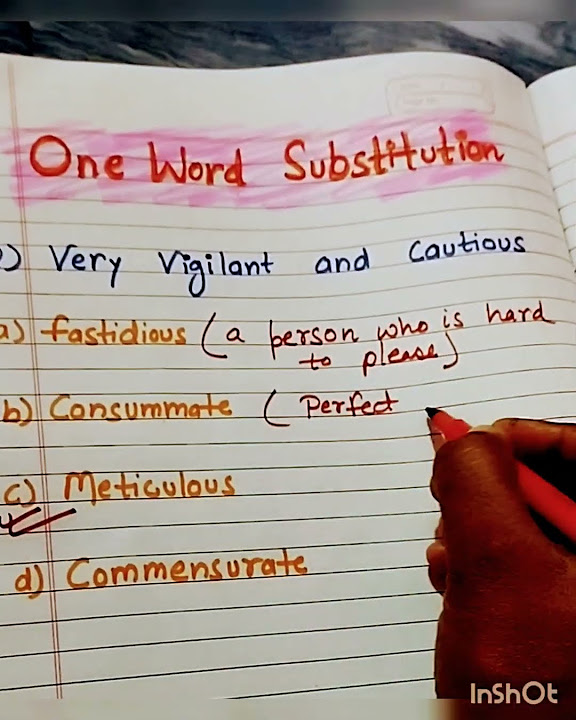 One Word Substitution
) Very Vigilant and Cautious
a) fastidious ( a person who is hard
to please)
b) Consummate ( Perfect
c) Meticulous
d) Commensurate
InShOt